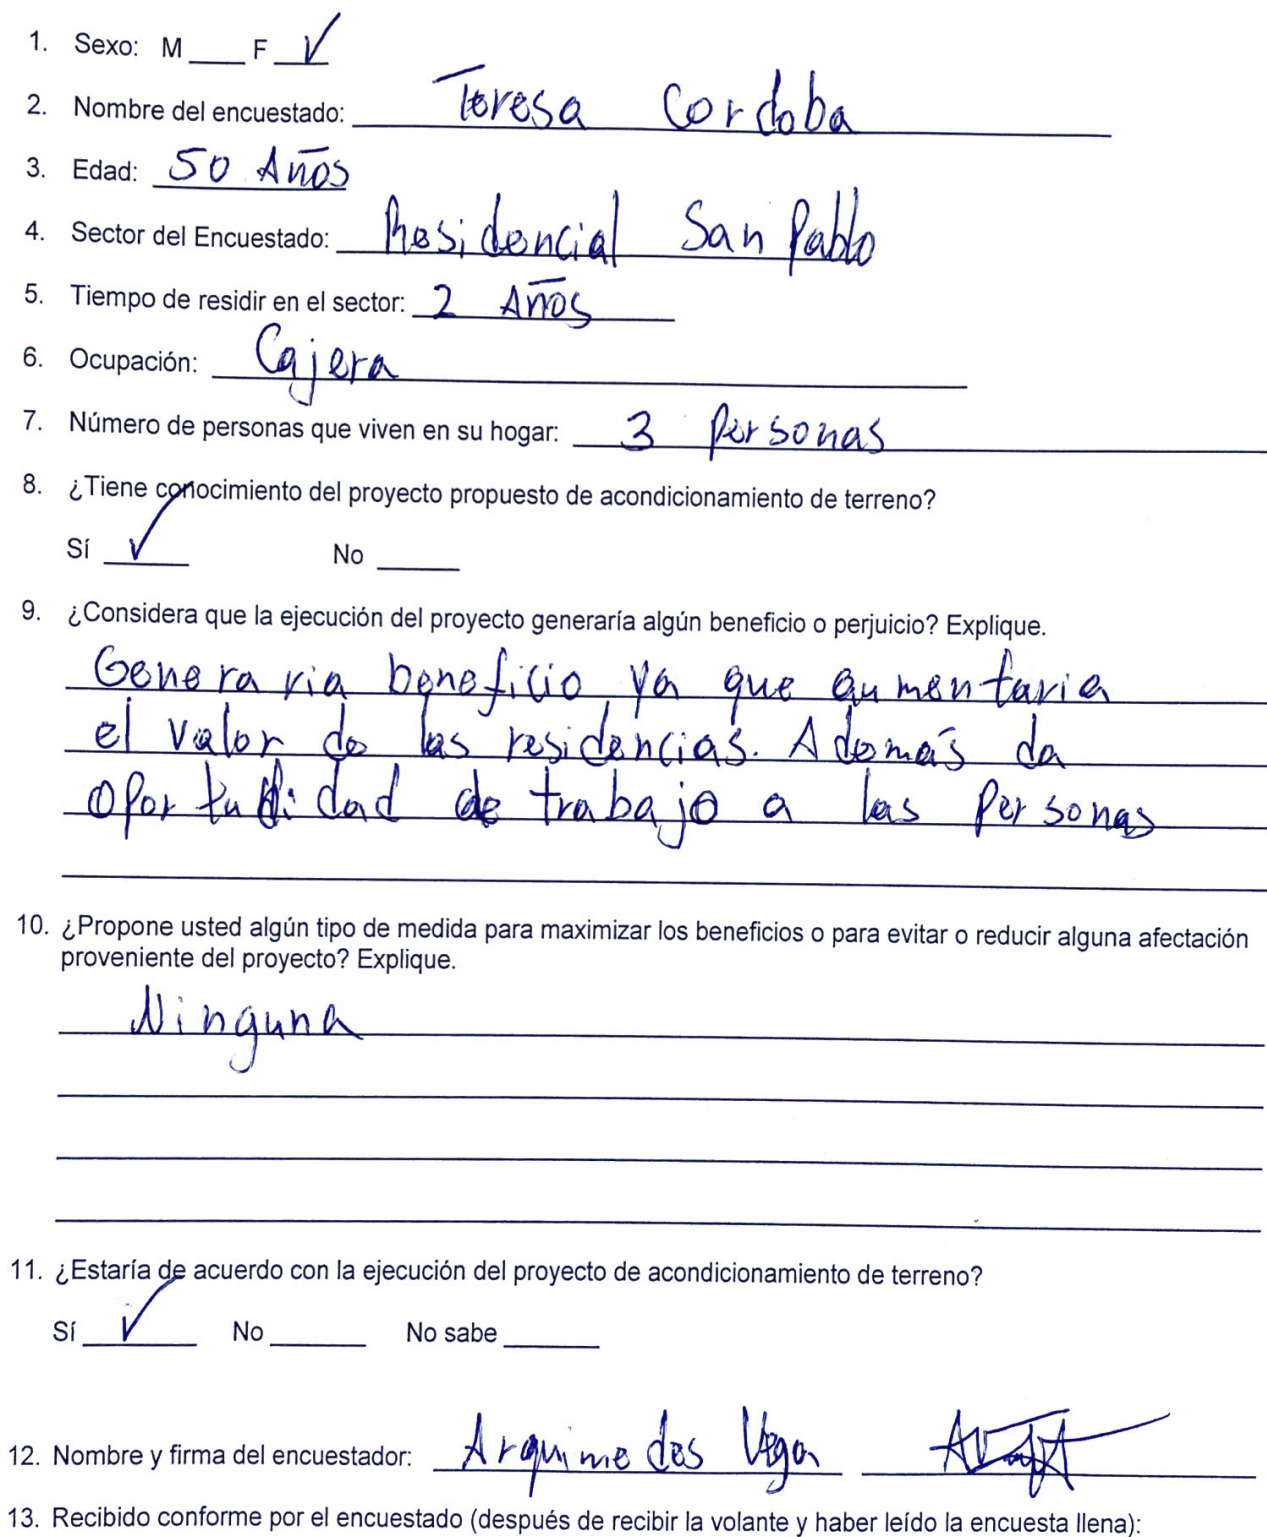 1. Sexo: M ____ F ✓
2. Nombre del encuestado: Teresa Cordoba
3. Edad: 50 Años
4. Sector del Encuestado: Residencial San Pablo
5. Tiempo de residir en el sector: 2 Años
6. Ocupación: Cajera
7. Número de personas que viven en su hogar: 3 Personas
8. ¿Tiene conocimiento del proyecto propuesto de acondicionamiento de terreno?
Sí ✓ No ____
9. ¿Considera que la ejecución del proyecto generaría algún beneficio o perjuicio? Explique.
Generaria beneficio ya que aumentaria
el valor de las residencias. Además da
oportunidad de trabajo a las personas
10. ¿Propone usted algún tipo de medida para maximizar los beneficios o para evitar o reducir alguna afectación
proveniente del proyecto? Explique.
Ninguna
11. ¿Estaría de acuerdo con la ejecución del proyecto de acondicionamiento de terreno?
Sí ✓ No ____ No sabe ____
12. Nombre y firma del encuestador: Arquimedes Vega
13. Recibido conforme por el encuestado (después de recibir la volante y haber leído la encuesta llena):